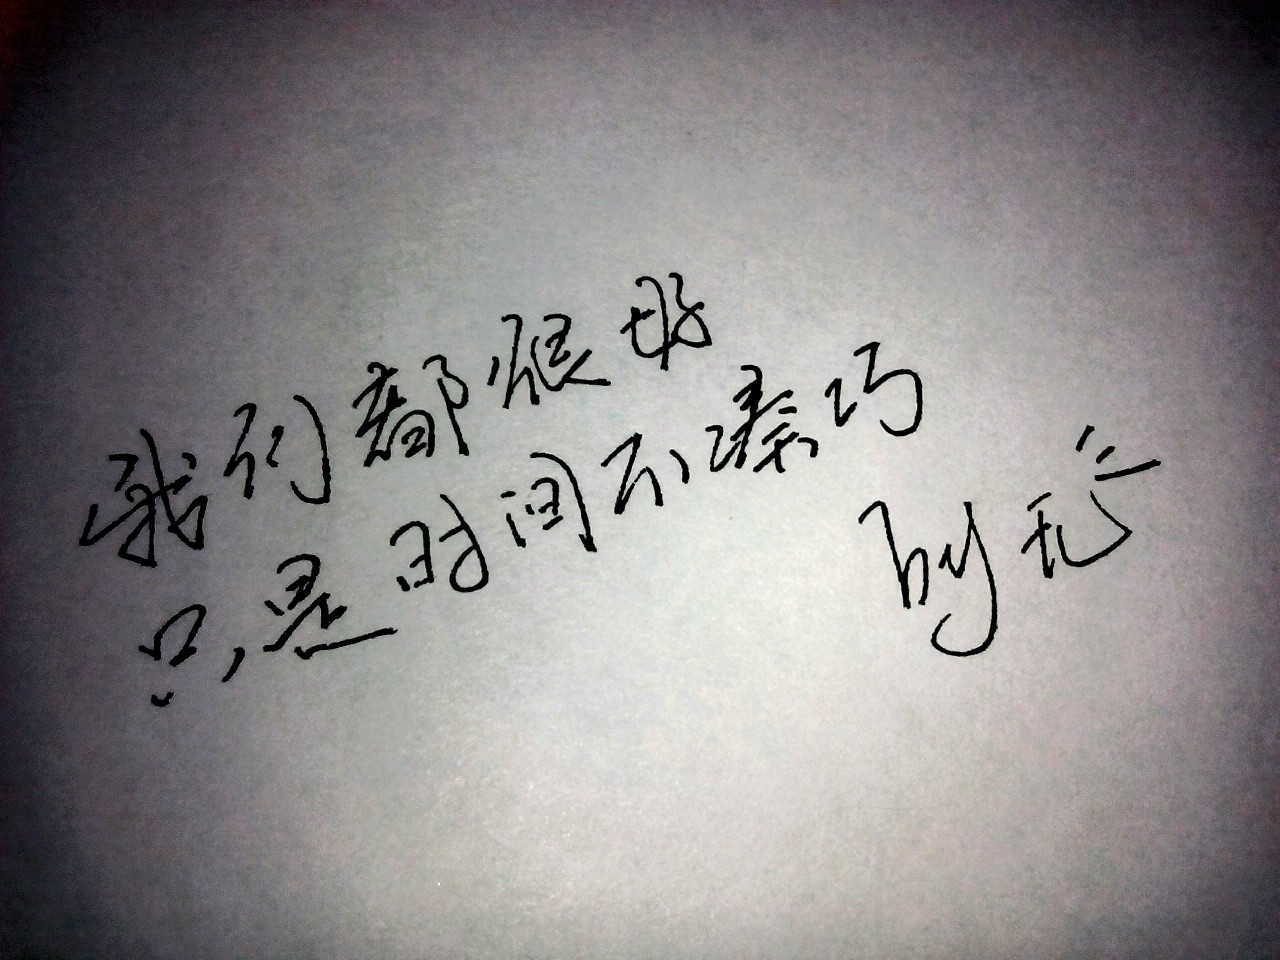 我们都很好
只是时间不凑巧
by 无